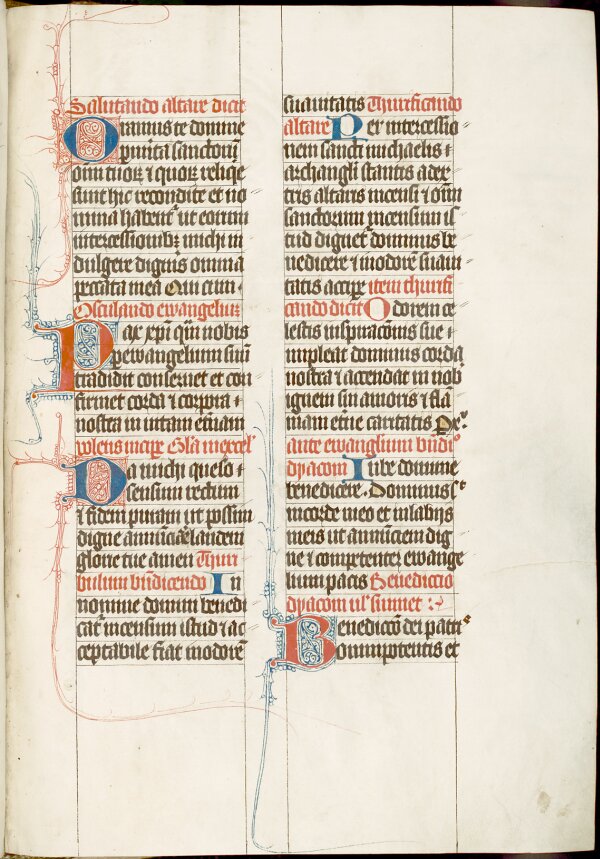 Salutando altare dicit
Oramus te domine
p merita sanctoꝝ
oīm tuoꝝ ⁊ quoꝝ reliqe
sunt hic recondite et no
mina habent᷑ ut eorum
intercessionibꝫ michi in
dulgere digneris omnia
peccata mea Qui cum ·
Osculando ewangeliuꝫ
Pax xp̄i qm̄ nobis
per ewangelium suū
tradidit conseruet et con
firmet corda ⁊ corpora
nostra in uitam et̄nam
Da michi queso
sensum rectum
⁊ fidem puram ut possim
digne annūciare laudem
glorie tue amen Thuri
bulum bn̄dicendo In
nomine domini benedi
cat᷑ incensum istud ⁊ ac
ceptabile fiat in odorē
suauitatis Thurificando
altare Per intercessio
nem sancti michaelis
archangli stantis a dex
tris altaris incensi ⁊ oīm
sanctorum incensum is
tud dignet᷑ dominus be
nedicere ⁊ in odorē suaui
tatis accipe item thurifi
cando dicit Odorem ce
lestis inspiracōnis sue
impleat dominus corda
nostra ⁊ accendat in nob
ignem sui amoris ⁊ flā
mam et̄ne caritatis
ante ewanglium bn̄di
dyacom Iube domine
benedicere · Dominus sͭ
in corde meo et in labijs
meis ut annūciem dig
ne ⁊ competenter ewange
lium pacis Benediccio
dyacom
Benediccō dei patris
omnipotentis et